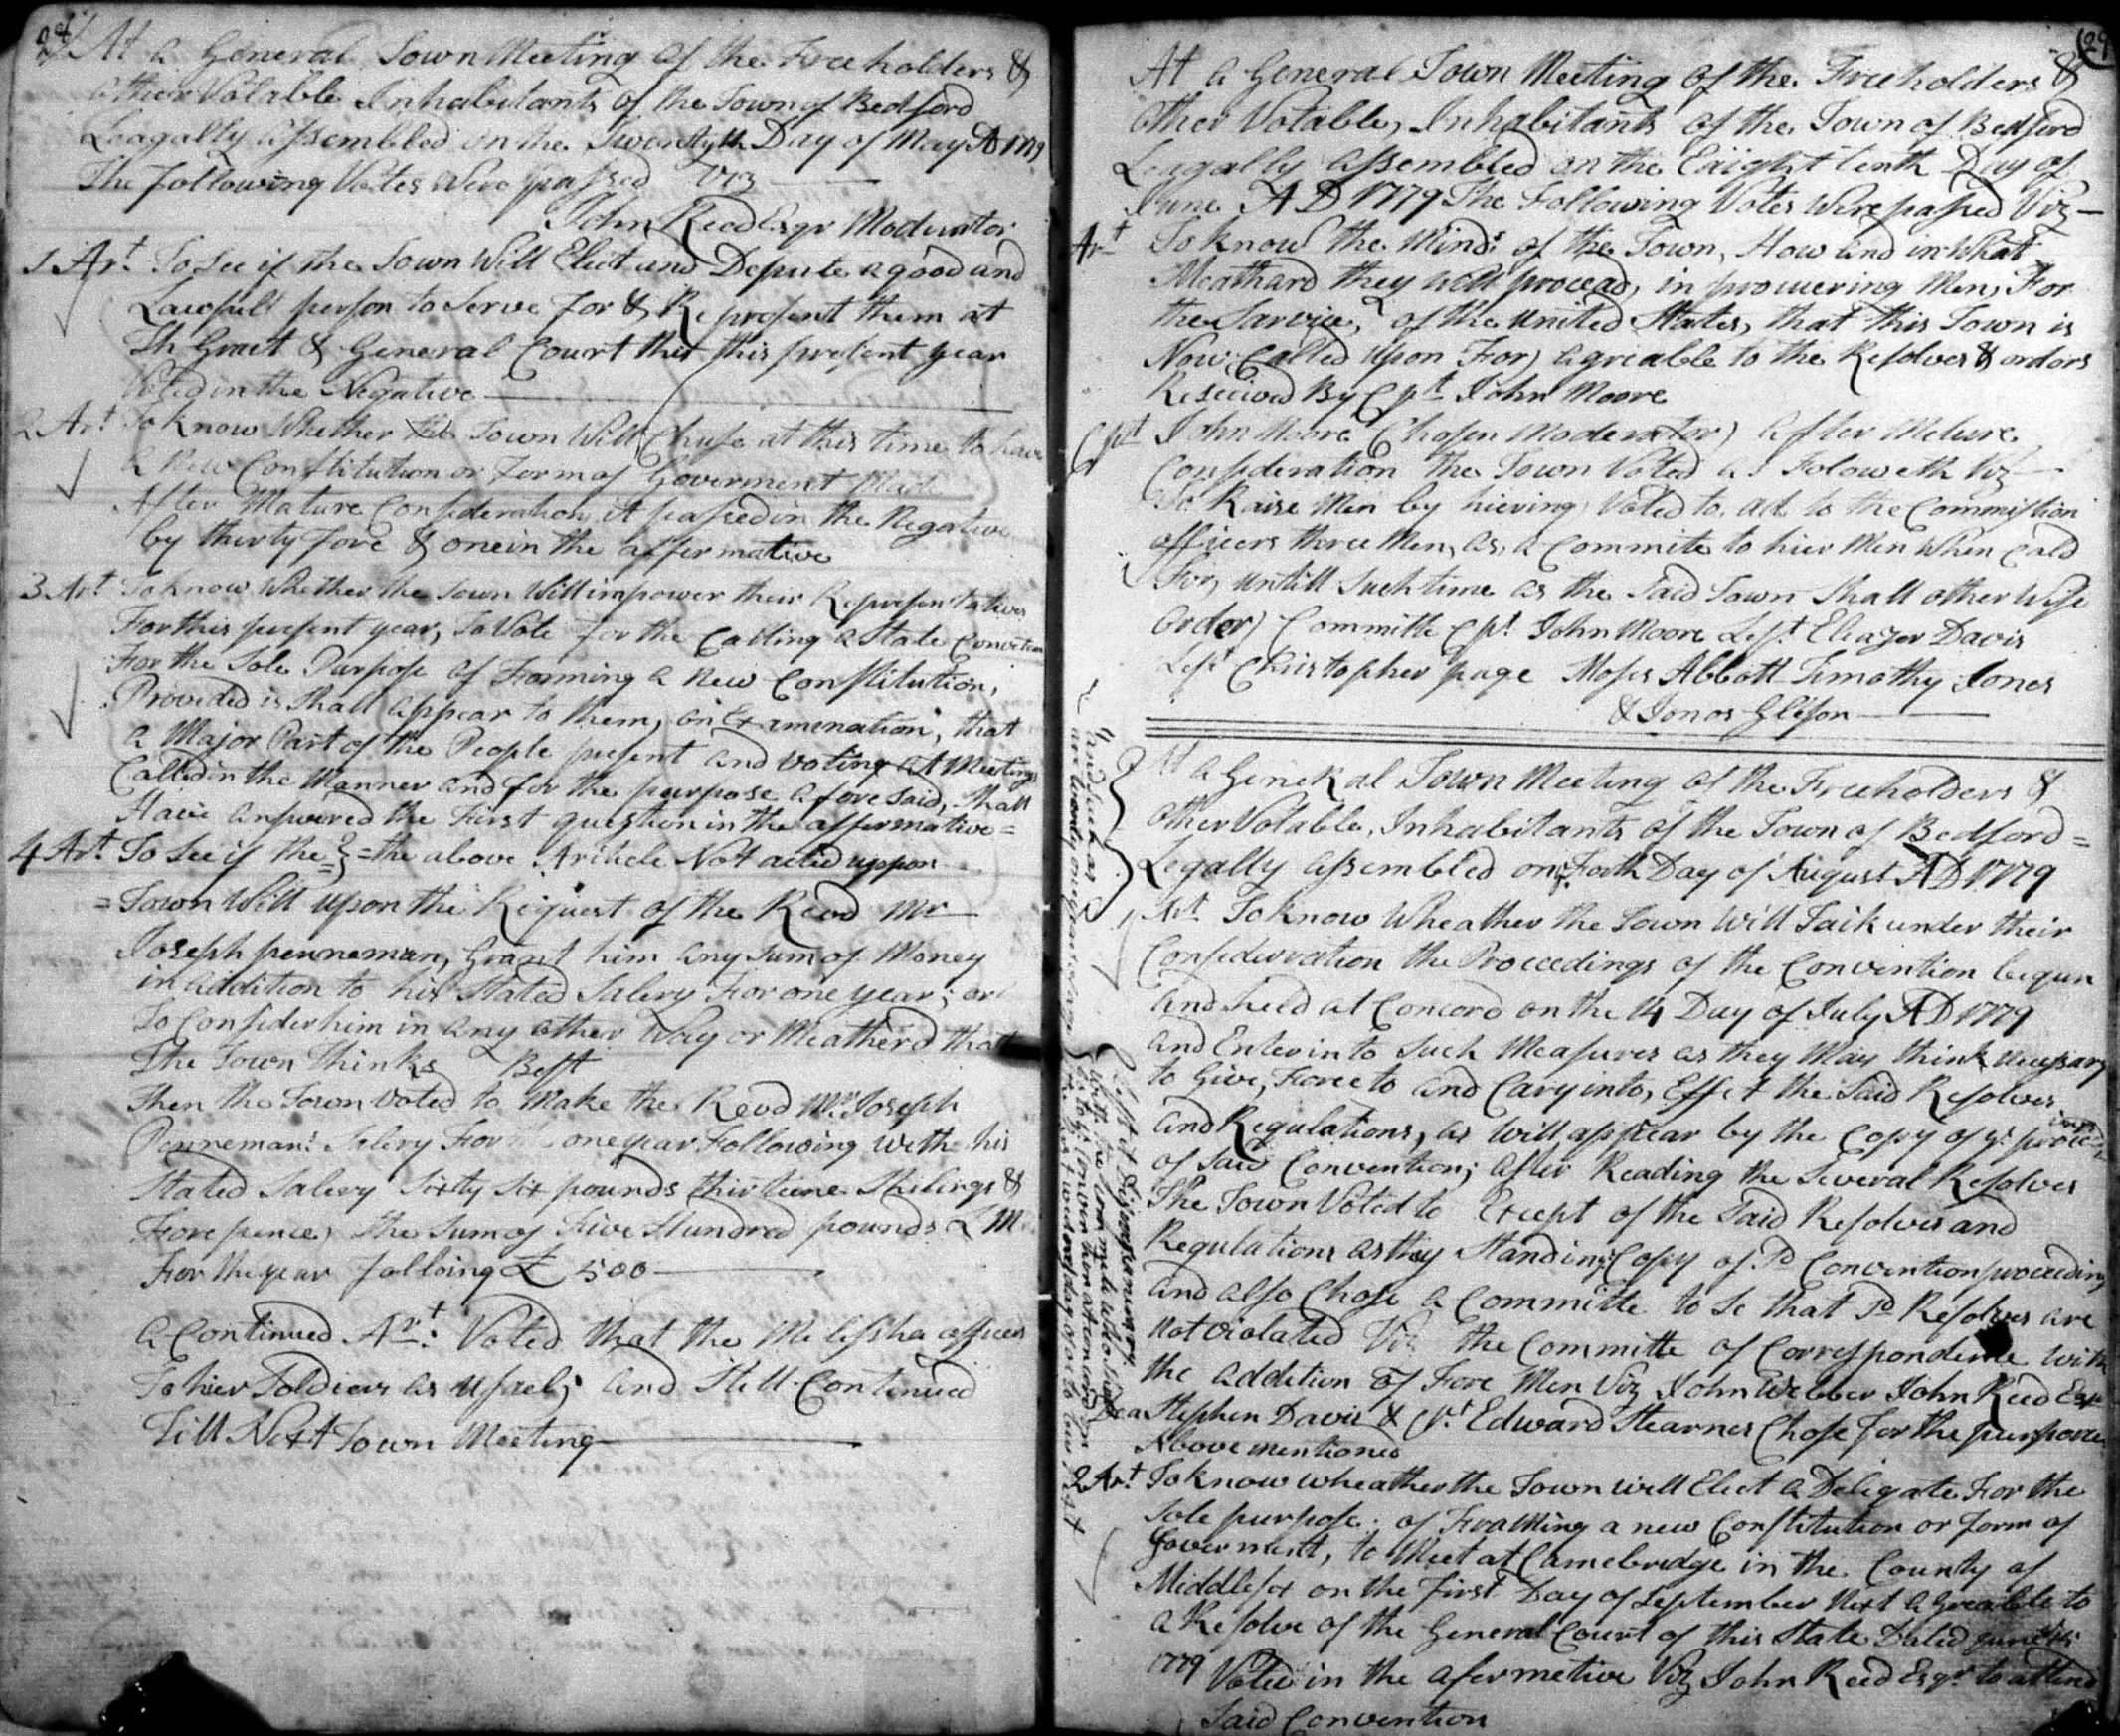 28
At a General Town Meeting of the Freeholders &
other Votable Inhabitants of the Town of Bedford
Leagally assembled on the Twentyth Day of May AD 1779
The following Votes Were passed Viz
John Reed Esqr Moderator
1 Art. To See if the Town Will Elect and Depute a good and
Lawfull person to Serve for & Represent them at
Th Graet & General Court this this present year
Voted in the Negative
2 Art To know Whether the Town Will Chuse at this time to have
a New Constitution or Form of Goverment Made
After Mature Consideration it passed in the Negative
by thirty fore & one in the affermative
3 Art To know Whether the Town Will impower their Representatives
For this present year, To Vote for the Calling a State Convetion
For the Sole Purpose of Forming a New Constitution,
Provided is Shall appear to them, on Examenation, that
a Major Part of the People present and voting at Meetings
Called in the Manner and for the purpose afore said, Shall
Have answered the First question in the affermative =
4 Art To See if the = the above Artikele Not acted uppon
= Town Will upon the Request of the Revd Mr
Joseph penneman, Grant him any Sum of Money
in addition to his Stated Salery For one year; or
To Consider him in any other Way or Meatherd that
The Town Thinks Best
Then the Town voted to Make the Revd Mr Joseph
Pennemans Salery For one year Following with his
Stated Salery Sixty Six pounds thirteene Shilings &
Fore pence, the Sum of Five Hundred pounds L M
For the year folloing £ 500
A Continued Art: Voted that the Melissha officers
To hier Soldiers as usael; and Still Continued
Till Next Town Meeting
29
At a General Town Meeting of the Freeholders &
other Votable, Inhabitants of the Town of Bedford
Leagally assembled on the Eaight tenth Day of
June AD 1779 The Following Votes Were passed Viz
Art To know the Minds of the Town, How and in What
Meathard they will procead, in procuering Men, For
the Sarvice, of the United States, that this Town is
Now, Called upon For) agriable to the Resolves & orders
Reseived By Cpt John Moore
Cpt John Moore Chosen Moderator) after Meture
Consideration the Town Voted as Foloweth Viz
To Raise Men by hiering Voted to ad to the Commission
officers three Men, as, a Commite to hier Men When Cald
For, untill Such time as the Said Town Shall other Wise
Order) Committe Cpt John Moore Left Eleazer Davis
Left Christopher page Moses Abbott Timothy Jones
& Jonas Glison
At a General Town Meeting of the Freeholders &
other Votable, Inhabitants of the Town of Bedford =
Legally assembled on Forth Day of August AD 1779
1 Art To know Wheather the Town Will Taik under their
Considerration the Proceedings of the Convention begun
and held at Concord on the 14 Day of July AD 1779
and Enter in to Such Measures as they May think necessary
to Give, Force to and Cary into, Effect the Said Resolves
and Regulations, as will appear by the Copy of ye proceed
ings
of Said Convention; after Reading the Several Resolves
The Town Voted to Except of the Said Resolves and
Regulations as they Stand in ye Copy of Sd Convention proceedings
and also Chose a Committe to Se that Sd Resolves are
Not violated Viz the Committe of Correspondence with
the addition of Fore Men Viz John Webber John Reed Esqr
Dea Stephen Davis & Cpt Edward Stearnes Chose for the purpose
Above mentioned
2 Art To know wheather the Town will Elect a Deligate For the
Sole purpose of Framing a new Constitution or form of
Goverment, to Meet at Camebredge in the County of
Middlesex on the First Day of September Next agreable to
a Resolve of the General Court of this State Dated June
1779 Voted in the afermetive Viz John Reed Esqr to attend
Said Convention